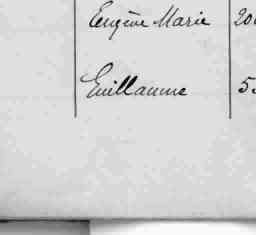 Eugène Marie 20
Guillaume 5